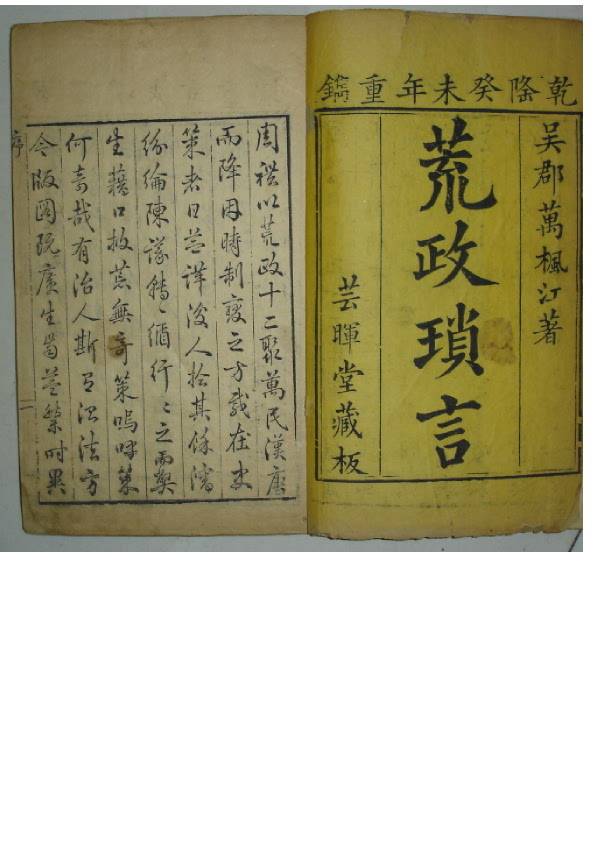 乾隆癸未年重鐫
吳郡萬楓江著
荒政瑣言
芸暉堂藏板
周禮以荒政十二聚萬民漢唐
而降因時制變之方載在史
策者日益詳後人拾其餘瀋
紛綸陳議轉〻循行〻之而獘
生藉口救荒無奇策嗚呼策
何奇哉有治人斯有治法方
今版圖既廣生齒益繁時異
序
一